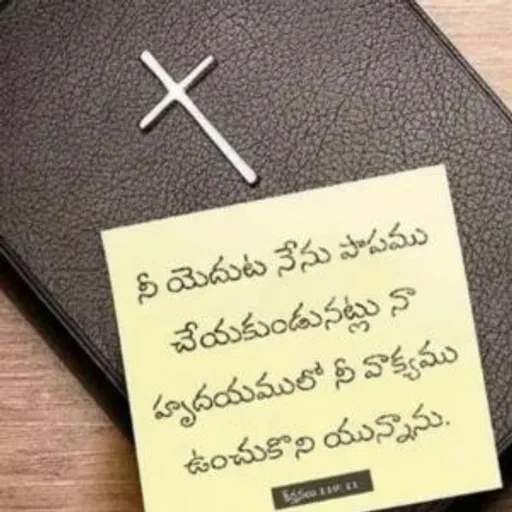 నీ యెదుట నేను పాపము
చేయకుండునట్లు నా
హృదయములో నీ వాక్యము
ఉంచుకొని యున్నాను.
కీర్తనలు 119: 11